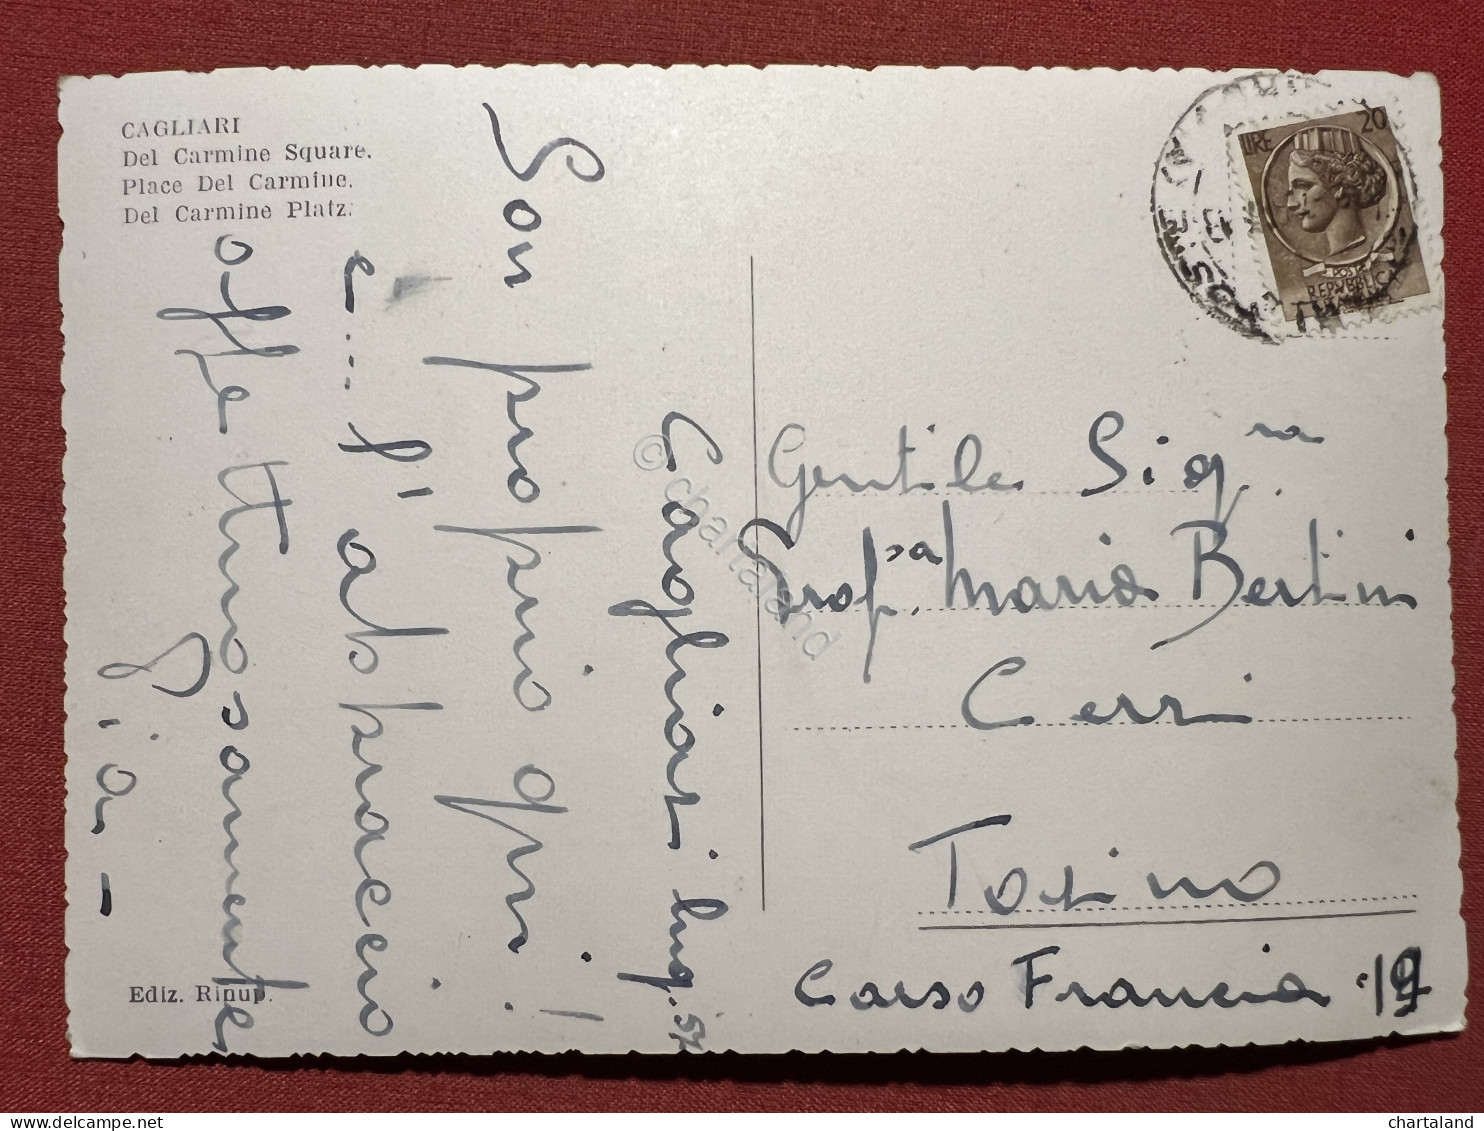 CAGLIARI
Del Carmine Square.
Place Del Carmine.
Del Carmine Platz.
Cagliari lug. 57
Son proprio qui!
e... l'abbraccio
affettuosamente
Gia-
Ediz. Rinup.
LIRE 20
POSTE
REPVBBLICA
Gentile Sig.ra
Prof.sa Maria Bertini
Cerri
Torino
Corso Francia 19
© chartaland
chartaland
www.delcampe.net